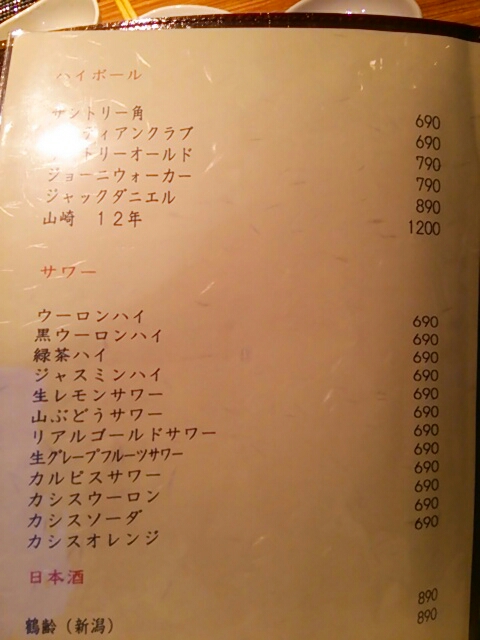 ハイボール
サントリー角 690
ディアンクラブ 690
トリーオールド 790
ジョーニウォーカー 790
ジャックダニエル 890
山崎 12年 1200
サワー
ウーロンハイ 690
黒ウーロンハイ 690
緑茶ハイ 690
ジャスミンハイ 690
生レモンサワー 690
山ぶどうサワー 690
リアルゴールドサワー 690
生グレープフルーツサワー 690
カルピスサワー 690
カシスウーロン 690
カシスソーダ 690
カシスオレンジ 690
日本酒
890
鶴齢（新潟） 890